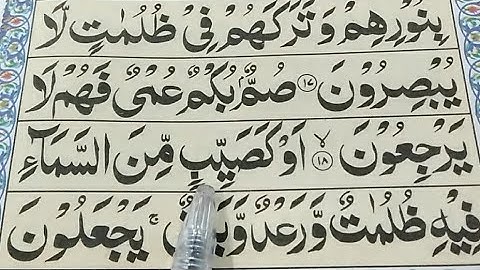 بِنُوْرِهِمْ وَتَرَكَهُمْ فِيْ ظُلُمٰتٍ لَّا
يُبْصِرُوْنَ ۝۱۷ صُمٌّۢ بُكْمٌ عُمْيٌ فَهُمْ لَا
يَرْجِعُوْنَ ۝۱۸ۙ اَوْ كَصَيِّبٍ مِّنَ السَّمَآءِ
فِيْهِ ظُلُمٰتٌ وَّرَعْدٌ ۚ يَجْعَلُوْنَ